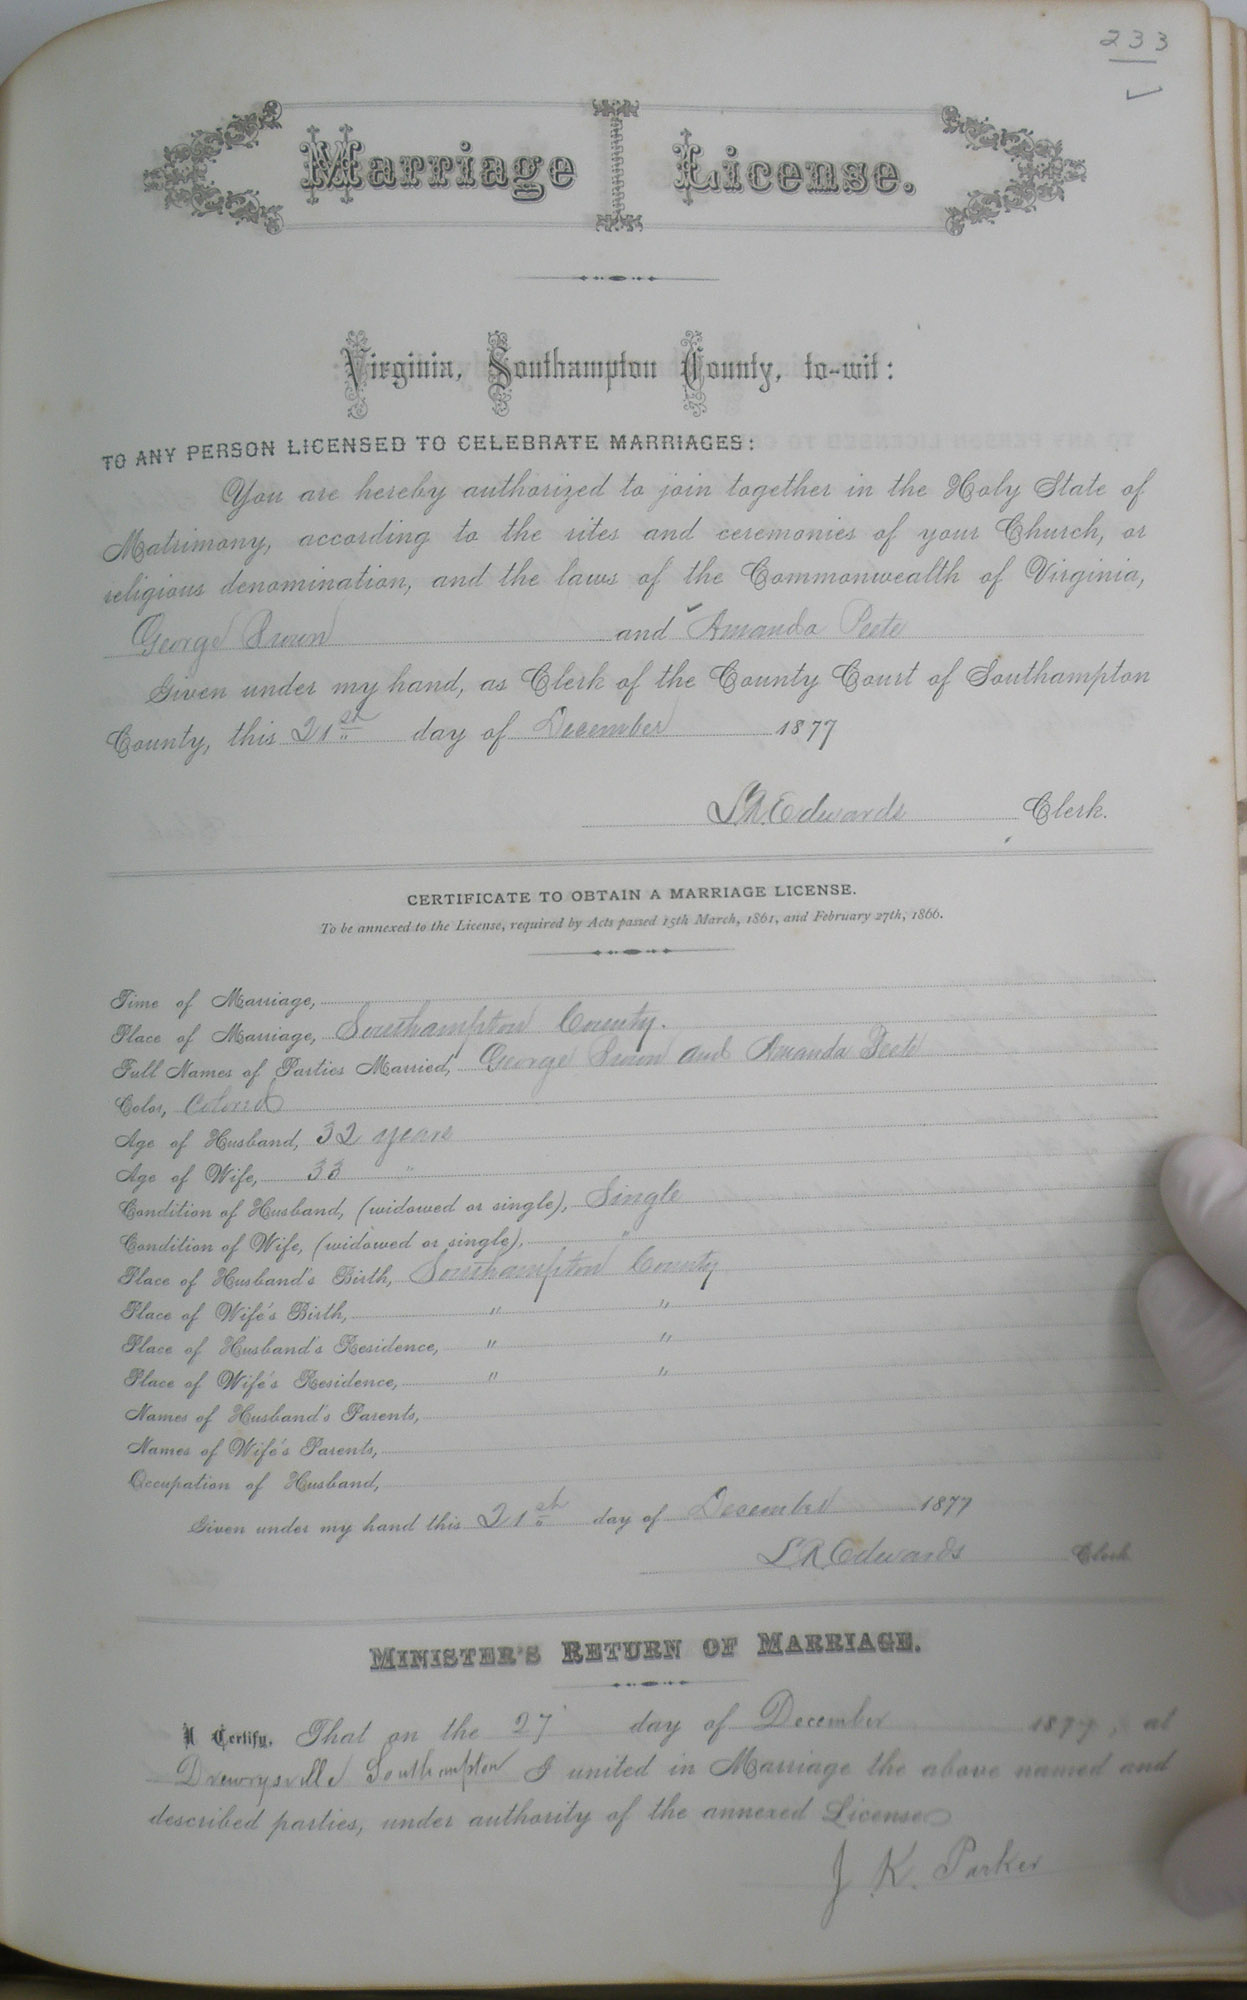 233
Marriage License.
Virginia, Southampton County, to-wit:
TO ANY PERSON LICENSED TO CELEBRATE MARRIAGES:
You are hereby authorized to join together in the Holy State of
Matrimony, according to the rites and ceremonies of your Church, or
religious denomination, and the laws of the Commonwealth of Virginia,
George Brown and Amanda Peete
Given under my hand, as Clerk of the County Court of Southampton
County, this 21st day of December 1877
L.R. Edwards Clerk.
CERTIFICATE TO OBTAIN A MARRIAGE LICENSE.
To be annexed to the License, required by Acts passed 15th March, 1861, and February 27th, 1866.
Time of Marriage,
Place of Marriage, Southampton County.
Full Names of Parties Married, George Brown and Amanda Peete
Color, Colored
Age of Husband, 32 years
Age of Wife, 33 "
Condition of Husband, (widowed or single), Single
Condition of Wife, (widowed or single), "
Place of Husband's Birth, Southampton County
Place of Wife's Birth, " "
Place of Husband's Residence, " "
Place of Wife's Residence, " "
Names of Husband's Parents,
Names of Wife's Parents,
Occupation of Husband,
Given under my hand this 21st day of December 1877
L.R. Edwards Clerk
MINISTER'S RETURN OF MARRIAGE.
I Certify, That on the 27 day of December 1877, at
Drewrysville Southampton I united in Marriage the above named and
described parties, under authority of the annexed License
J. K. Parker